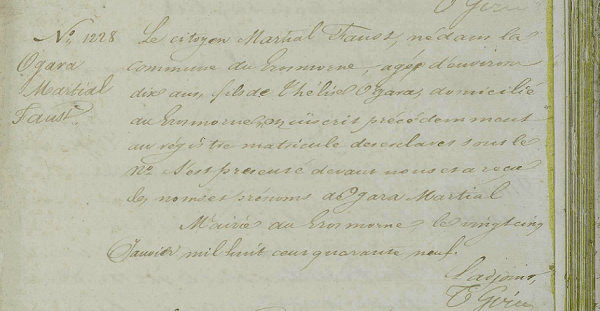 T Gérin
Nº 1228
Ogara
Martial
Faust
Le citoyen Martial Faust, né dans la
commune du Grosmorne, agé d'environ
dix ans, fils de Thélise Ogara, domicilié
du Grosmorne, inscrit précédemment
au régistre matricule des esclaves sous le
Nº s'est présenté devant nous et a reçu
les noms et prénoms d'Ogara Martial
Mairie du Grosmorne le vingt cinq
Janvier mil huit cent quarante neuf.
L'adjoint,
T Gérin